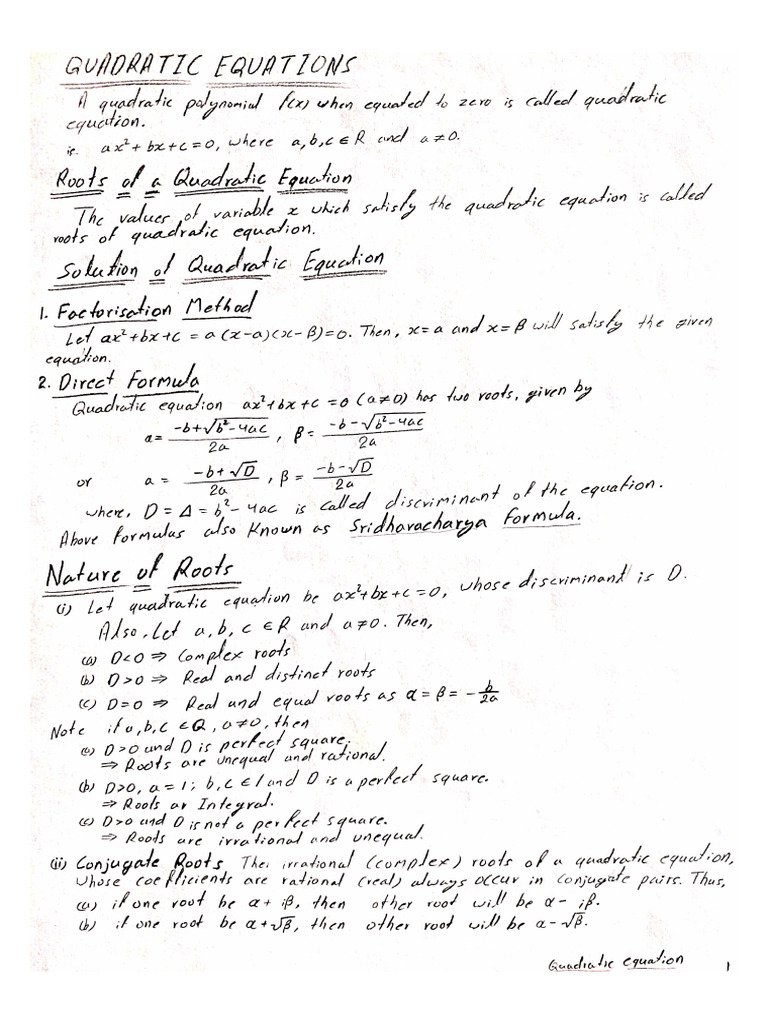 QUADRATIC EQUATIONS
A quadratic polynomial f(x) when equated to zero is called quadratic
equation.
ie. ax²+bx+c=0, where a,b,c ∈ R and a≠0.
Roots of a Quadratic Equation
The values of variable x which satisfy the quadratic equation is called
roots of quadratic equation.
Solution of Quadratic Equation
1. Factorisation Method
Let ax²+bx+c = a(x-a)(x-β)=0. Then, x=a and x=β will satisfy the given
equation.
2. Direct Formula
Quadratic equation ax²+bx+c=0 (a≠0) has two roots, given by
a = (-b+√(b²-4ac))/2a, β = (-b-√(b²-4ac))/2a
or a = (-b+√D)/2a, β = (-b-√D)/2a
where, D = Δ = b²-4ac is called discriminant of the equation.
Above formulas also Known as Sridharacharya Formula.
Nature of Roots
(i) Let quadratic equation be ax²+bx+c=0, whose discriminant is D.
Also, Let a, b, c ∈ R and a≠0. Then,
(a) D<0 ⇒ Complex roots
(b) D>0 ⇒ Real and distinct roots
(c) D=0 ⇒ Real and equal roots as α = β = -b/2a
Note if a,b,c ∈ Q, a≠0, then
(a) D>0 and D is perfect square.
⇒ Roots are unequal and rational.
(b) D>0, a=1; b,c ∈ I and D is a perfect square.
⇒ Roots ar Integral.
(c) D>0 and D is not a perfect square.
⇒ Roots are irrational and unequal.
(ii) Conjugate Roots The irrational (complex) roots of a quadratic equation,
whose coefficients are rational (real) always occur in conjugate pairs. Thus,
(a) if one root be α+iβ, then other root will be α-iβ.
(b) if one root be α+√β, then other root will be α-√β.
Quadratic equation 1